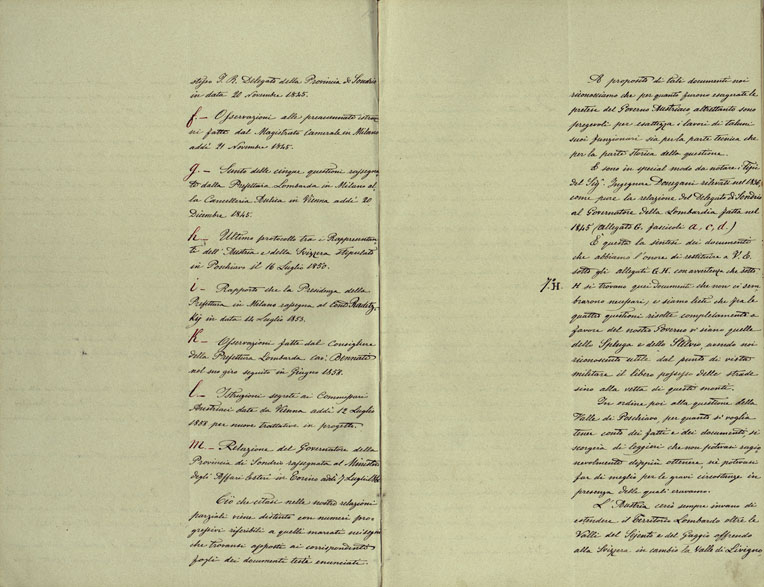 stesso I. R. Delegato della Provincia di Sondrio
in data 20 Novembre 1845.
f.— Osservazioni alle preaccennate
fatte dal Magistrato Camerale in Milano
addì 21 Novembre 1845.
g.— Sunto delle cinque questioni rassegna
to dalla Prefettura Lombarda in Milano al
la Cancelleria Aulica in Vienna addì 20
Dicembre 1845.
h.— Ultimo protocollo tra i Rappresentan
ti dell'Austria e della Svizzera stipulato
in Poschiavo il 16 Luglio 1850.
i.— Rapporto che la Presidenza della
Prefettura in Milano rassegna al Radetz
kij in data 14 Luglio 1853.
K.— Osservazioni fatte dal Consigliere
della Prefettura Lombarda cav. Bennato
nel suo giro seguito in Giugno 1858.
l.— Istruzioni segrete ai Commissari
Austriaci date da Vienna addì 12 Luglio
1858 per nuove trattative in progetto.
m.— Relazione del Governatore della
Provincia di Sondrio rassegnata al Ministro
degli Affari Esteri in Torino addì 7 Luglio
Ciò che citasi nelle nostre relazioni
parziali viene distinto con numeri pro
gressivi riferibili a quelli marcati
che trovansi apposti ai corrispondenti
fogli dei documenti testè enunciati.
A proposito di tali documenti noi
riconosciamo che per quanto furono esagerate le
pretese del Governo Austriaco, altrettanto sono
pregevoli per esattezza i lavori di taluni
suoi funzionari sia per la parte tecnica che
per la parte storica della questione.
E sono in special modo da notare i Tipi
del Sig. Ingegnere Donegani rilevati nel
come pure la relazione del Delegato di Sondrio
al Governatore della Lombardia fatta nel
1845 (Allegato G. fascicoli a, c, d.)
È questa la sintesi dei documenti
che abbiamo l'onore di restituire a V. E.
sotto gli allegati G. H. con avvertenza che sotto
H. H si trovano quei documenti che non ci sem
brarono necessari, e siamo lieti che fra le
quattro questioni risolte completamente a
favore del nostro Governo vi siano quelle
dello Spluga e dello Stelvio avendo noi
riconosciuto utile dal punto di vista
militare il libero possesso delle strade
sino alla vetta di questi monti.
In ordine poi alla questione della
Valle di Poschiavo, per quanto si voglia
tener conto dei fatti e dei documenti, si
scorgerà di leggieri che non potevasi ragio
nevolmente di più ottenere, nè potevasi
far di meglio per le gravi circostanze in
presenza delle quali eravamo.
L'Austria cercò sempre invano di
estendere il Territorio Lombardo oltre le
Valli del e del Gaggio offrendo
alla Svizzera in cambio la Valle di Livigno